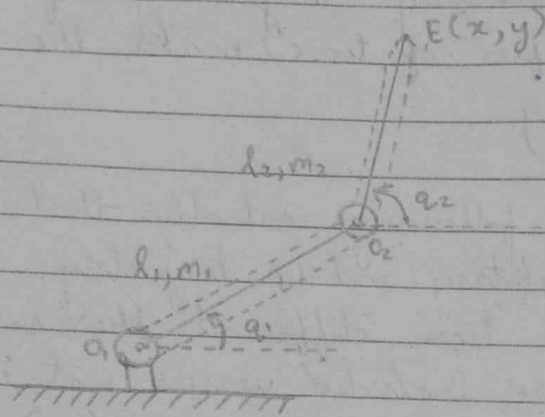 E(x, y)
l₂, m₂
q₂
O₂
l₁, m₁
q₁
O₁